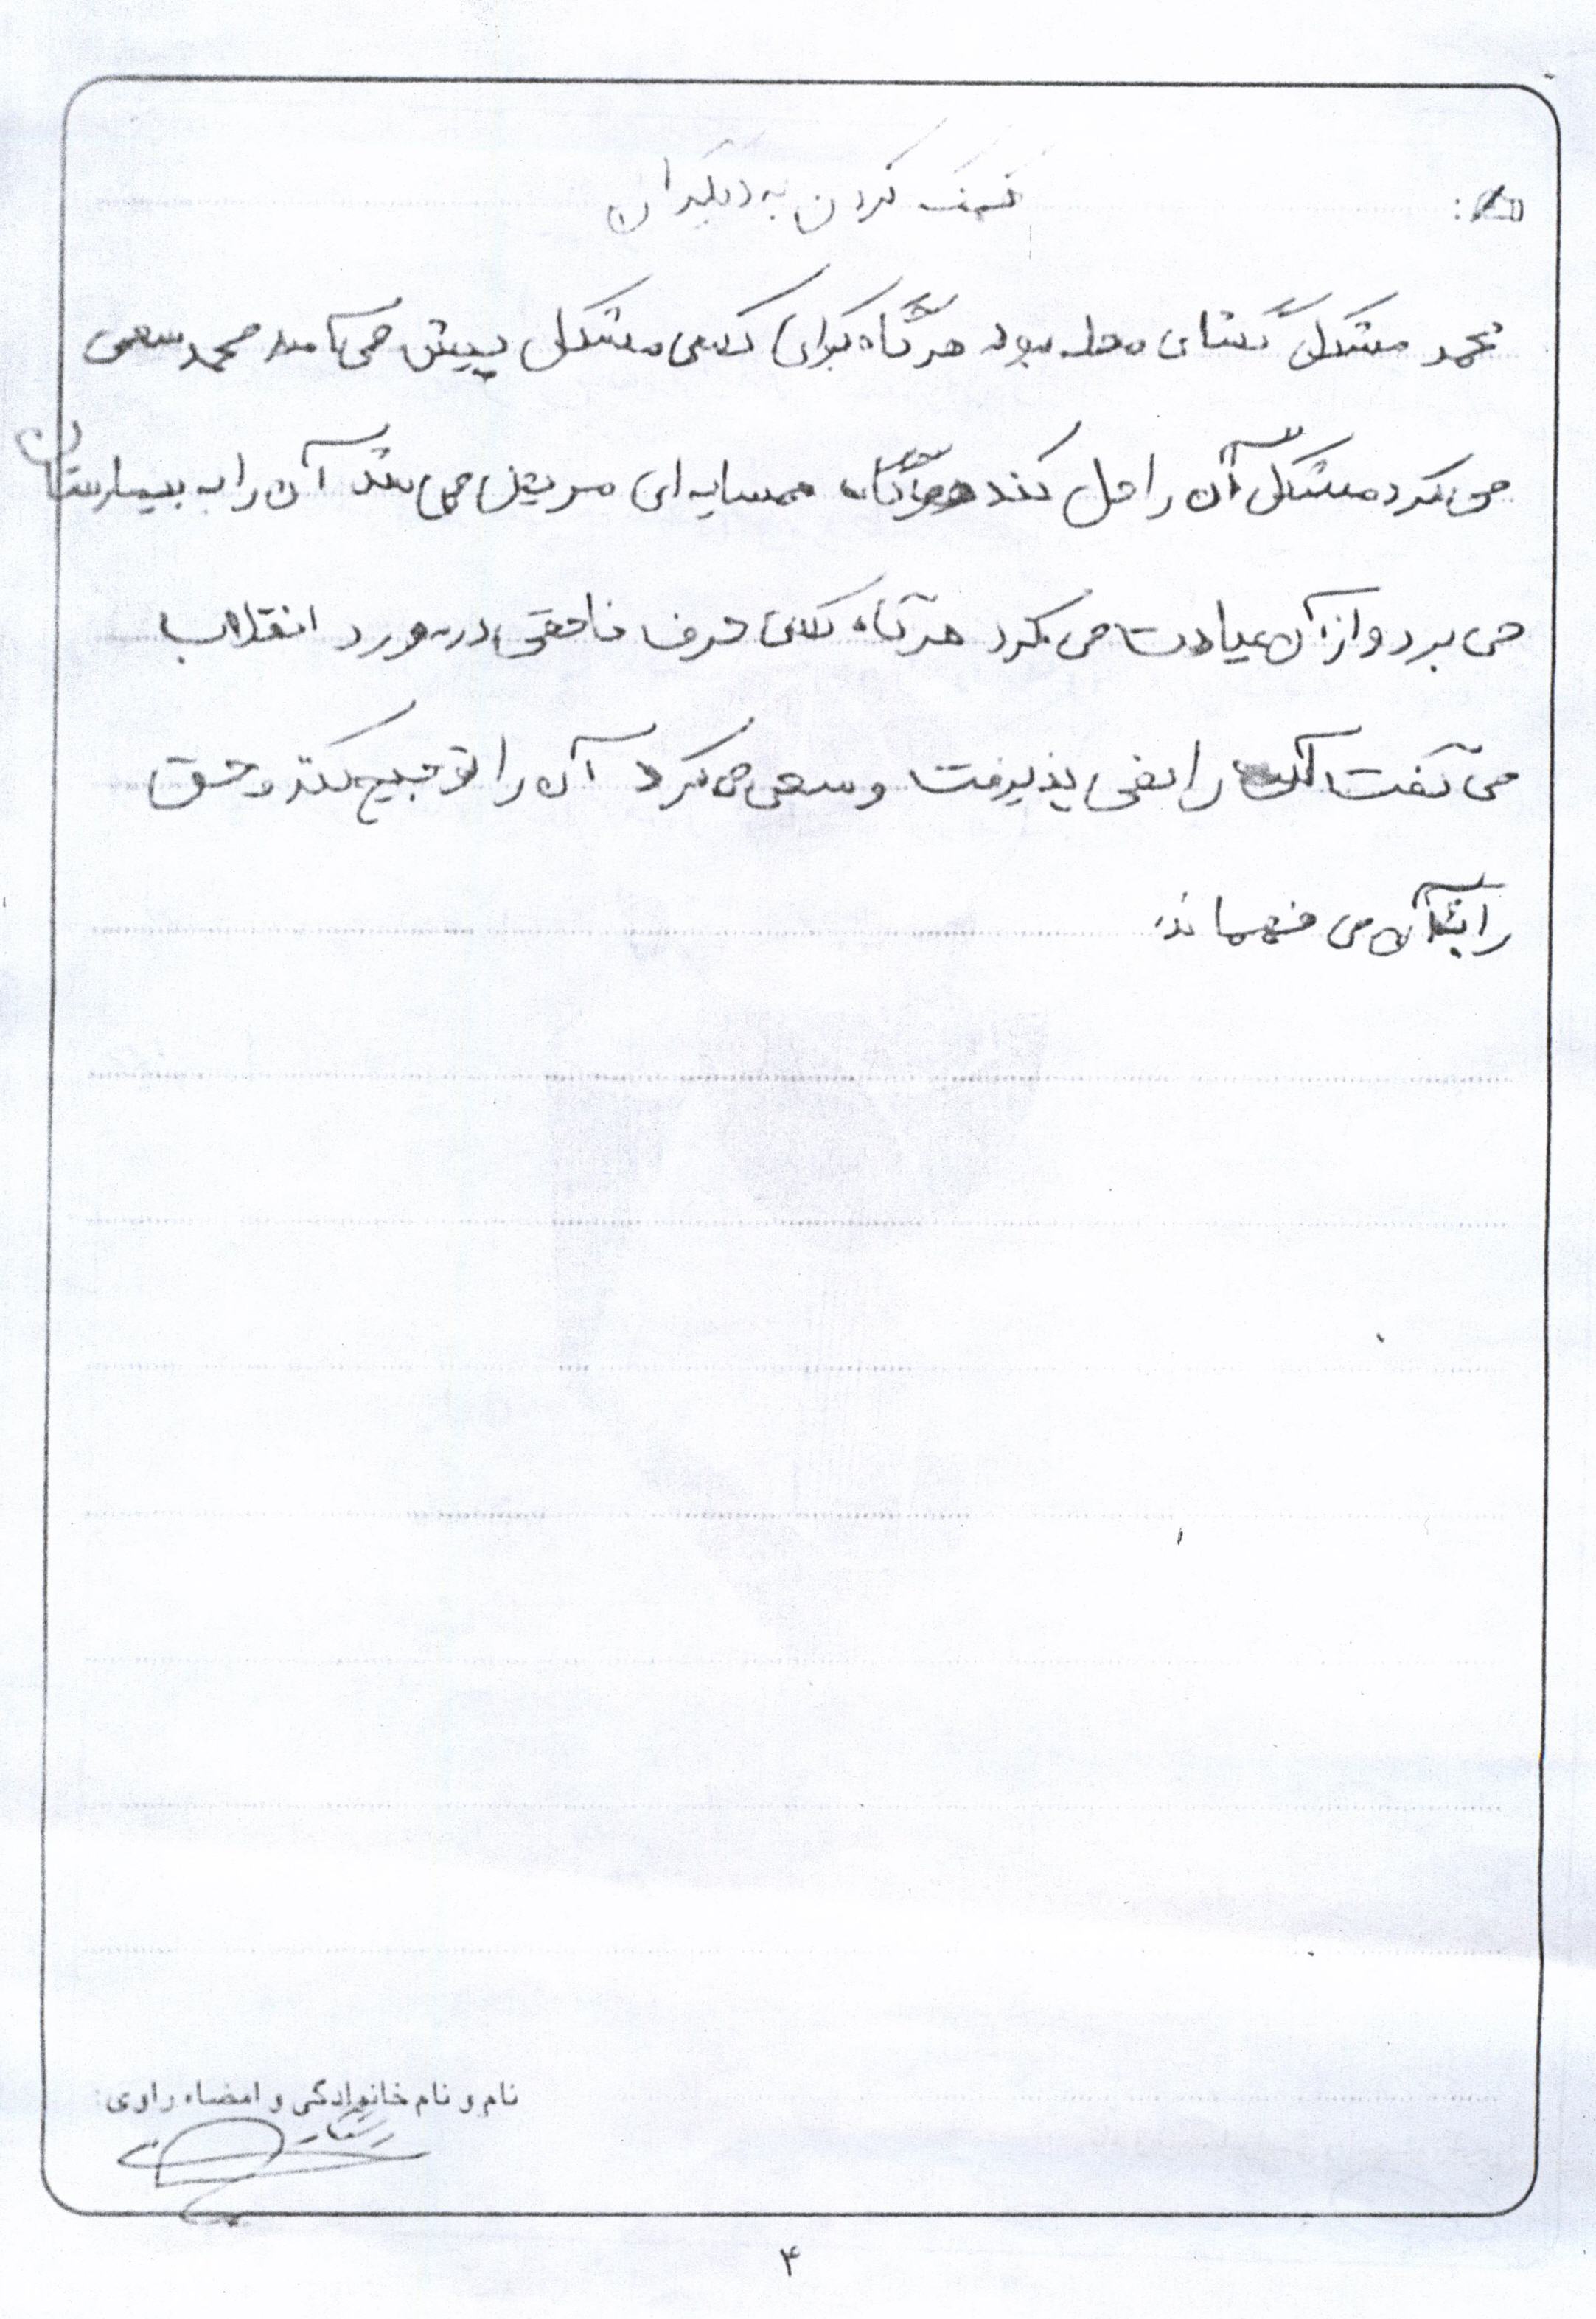 کمک کردن به دیگران
محمد مشکل گشای محله بود هر گاه برای کسی مشکل پیش می آمد محمد سعی
می کرد مشکل آن را حل کند هر گاه همسایه ای مریض می شد آن را به بیمارستان
می برد و از آن عیادت می کرد هر گاه کسی حرف ناحقی در مورد انقلاب
می گفت آن را نمی پذیرفت و سعی می کرد آن را توجیح کند و حق
را به آن می فهماند
نام و نام خانوادگی و امضاء راوی:
۴